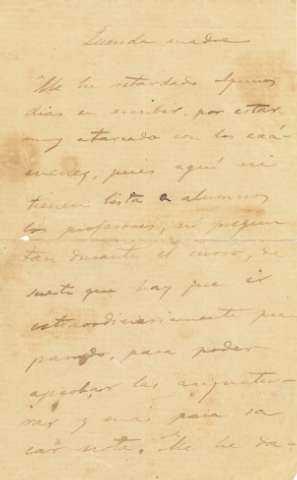 Querida madre
Me he retardado algunos
dias en escribir, por estar
muy atareado con los exá-
menes, pues aquí ni
tienen lista a alumnos
los profesores, ni pregun
tan durante el curso, de
suerte que hay que ir
extraordinariamente pre
parado, para poder
aprobar las asignatu-
ras y más para sa
car nota. Me he da-